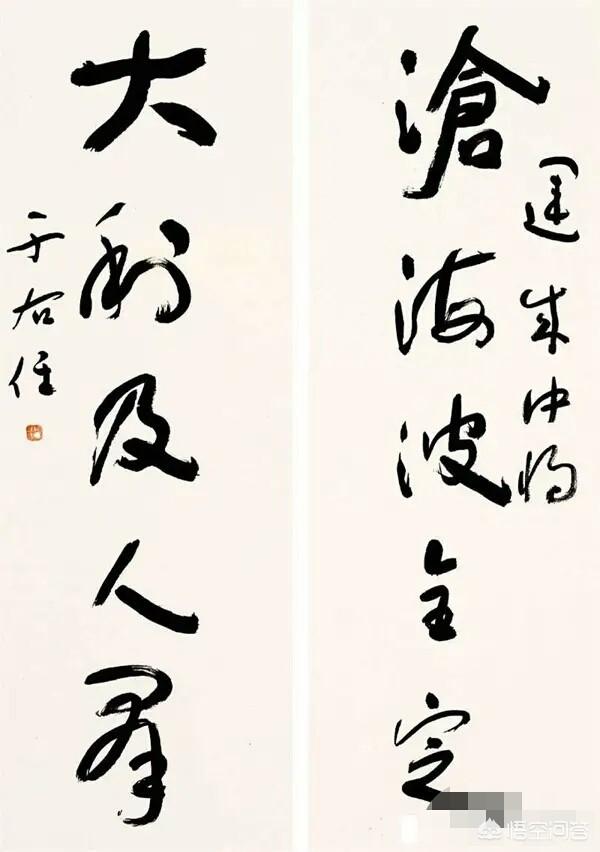 滄海波全定
運成中將
大利及人羣
于右任
悟空问答